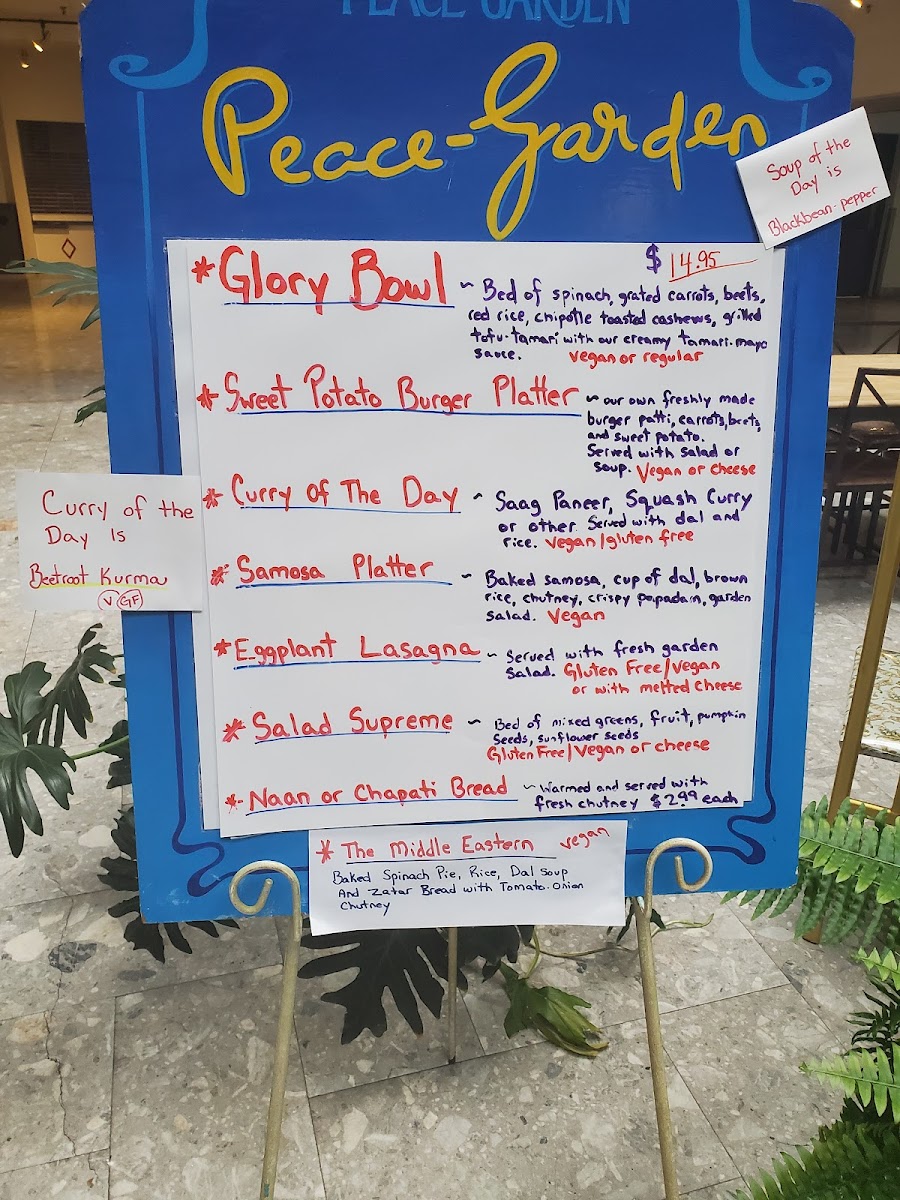 PEACE GARDEN
Peace-Garden
Soup of the
Day is
Blackbean-pepper
$ 14.95
* Glory Bowl ~ Bed of spinach, grated carrots, beets,
red rice, chipotle toasted cashews, grilled
tofu-tamari with our creamy tamari-mayo
sauce. vegan or regular
* Sweet Potato Burger Platter ~ our own freshly made
burger patti, carrots, beets,
and sweet potato.
Served with salad or
soup. Vegan or cheese
* Curry Of The Day ~ Saag Paneer, Squash Curry
or other. Served with dal and
rice. Vegan/gluten free
Curry of the
Day Is
Beetroot Kurma
V GF
* Samosa Platter ~ Baked samosa, cup of dal, brown
rice, chutney, crispy papadam, garden
salad. Vegan
* Eggplant Lasagna ~ Served with fresh garden
Salad. Gluten Free/Vegan
or with melted cheese
* Salad Supreme ~ Bed of mixed greens, fruit, pumpkin
Seeds, sunflower seeds
Gluten Free/Vegan or cheese
* Naan or Chapati Bread ~ Warmed and served with
fresh chutney $2.99 each
* The Middle Eastern vegan
Baked Spinach Pie, Rice, Dal Soup
And Zatar Bread with Tomato-Onion
Chutney